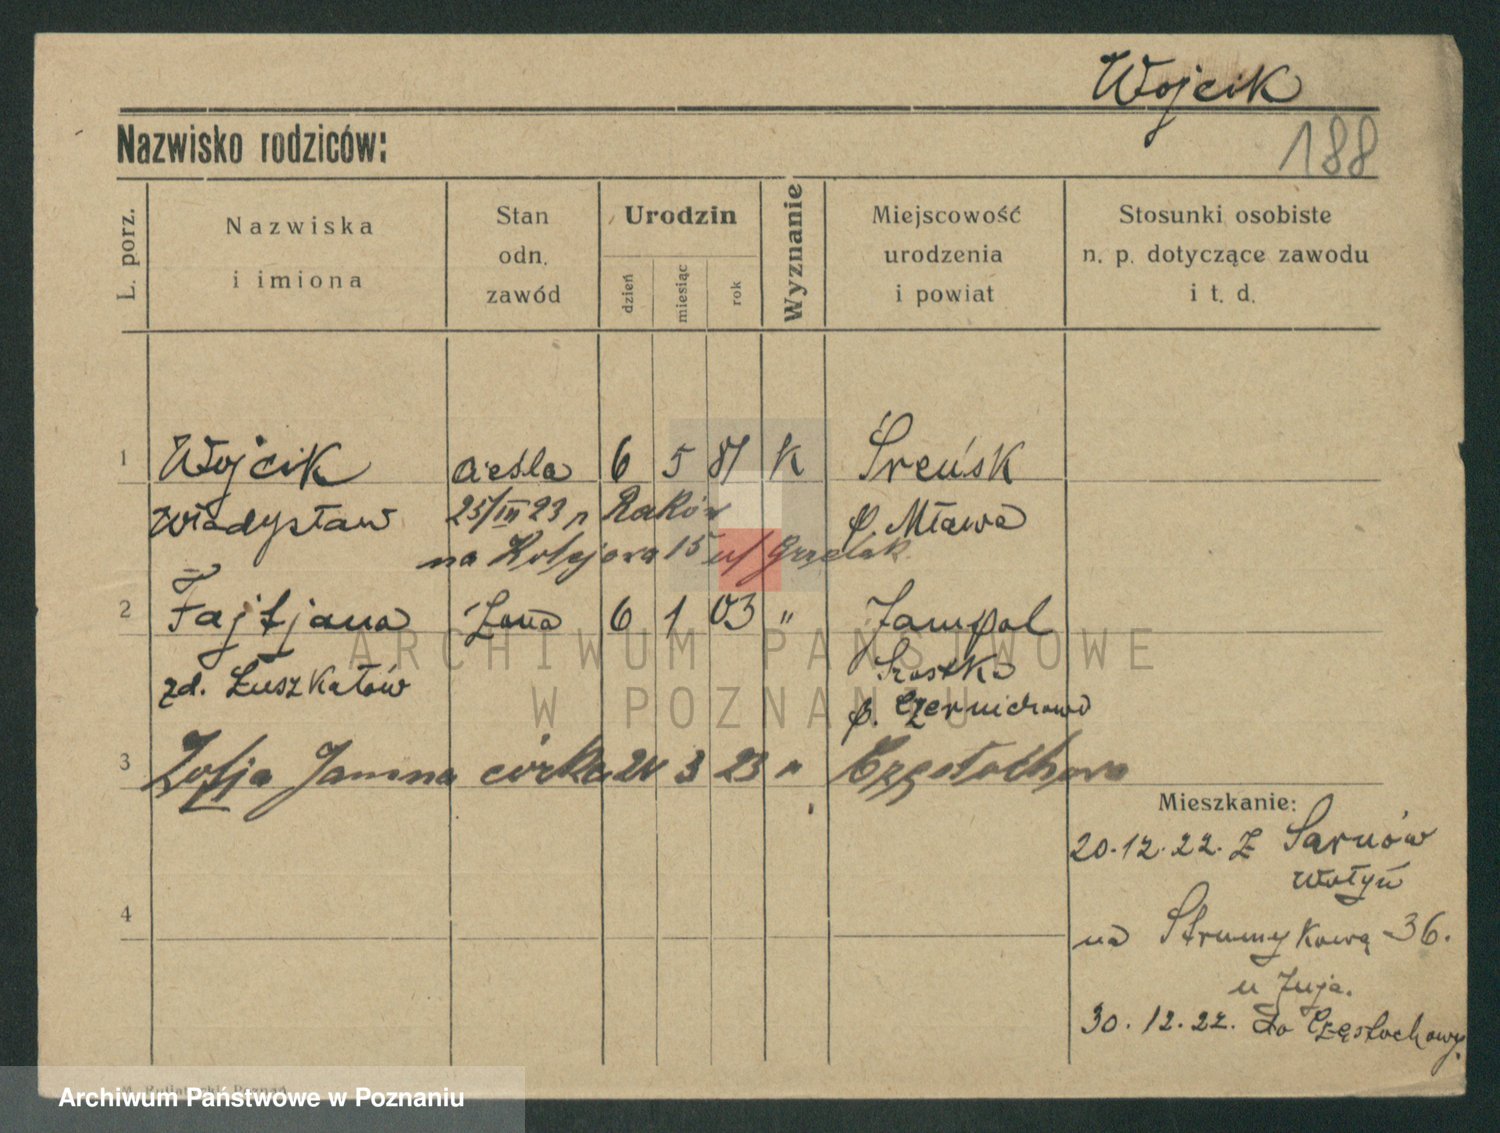 Wojcik
188
Nazwisko rodziców:
L. porz.
Nazwiska
i imiona
Stan
odn.
zawód
Urodzin
dzień
miesiąc
rok
Wyznanie
Miejscowość
urodzenia
i powiat
Stosunki osobiste
n. p. dotyczące zawodu
i t. d.
1 Wojcik cieśla 6 5 81 K Śreńsk
Władysław 25/III 23 r Raków p. Mława
na Kolejowa 15 u/ Grzelak
2 Tajtjana Żona 6 1 03 " Jampol
zd. Łuszkatów
p. Czernichowo
3 Zofja Janina córka 24 3 23 " Częstochowa
Mieszkanie:
20.12.22. z Sarnów
Wołyń
4
na Strumykową 36.
u
30.12.22. do Częstochowy.
ARCHIWUM PAŃSTWOWE
W POZNANIU
Poznań
Archiwum Państwowe w Poznaniu